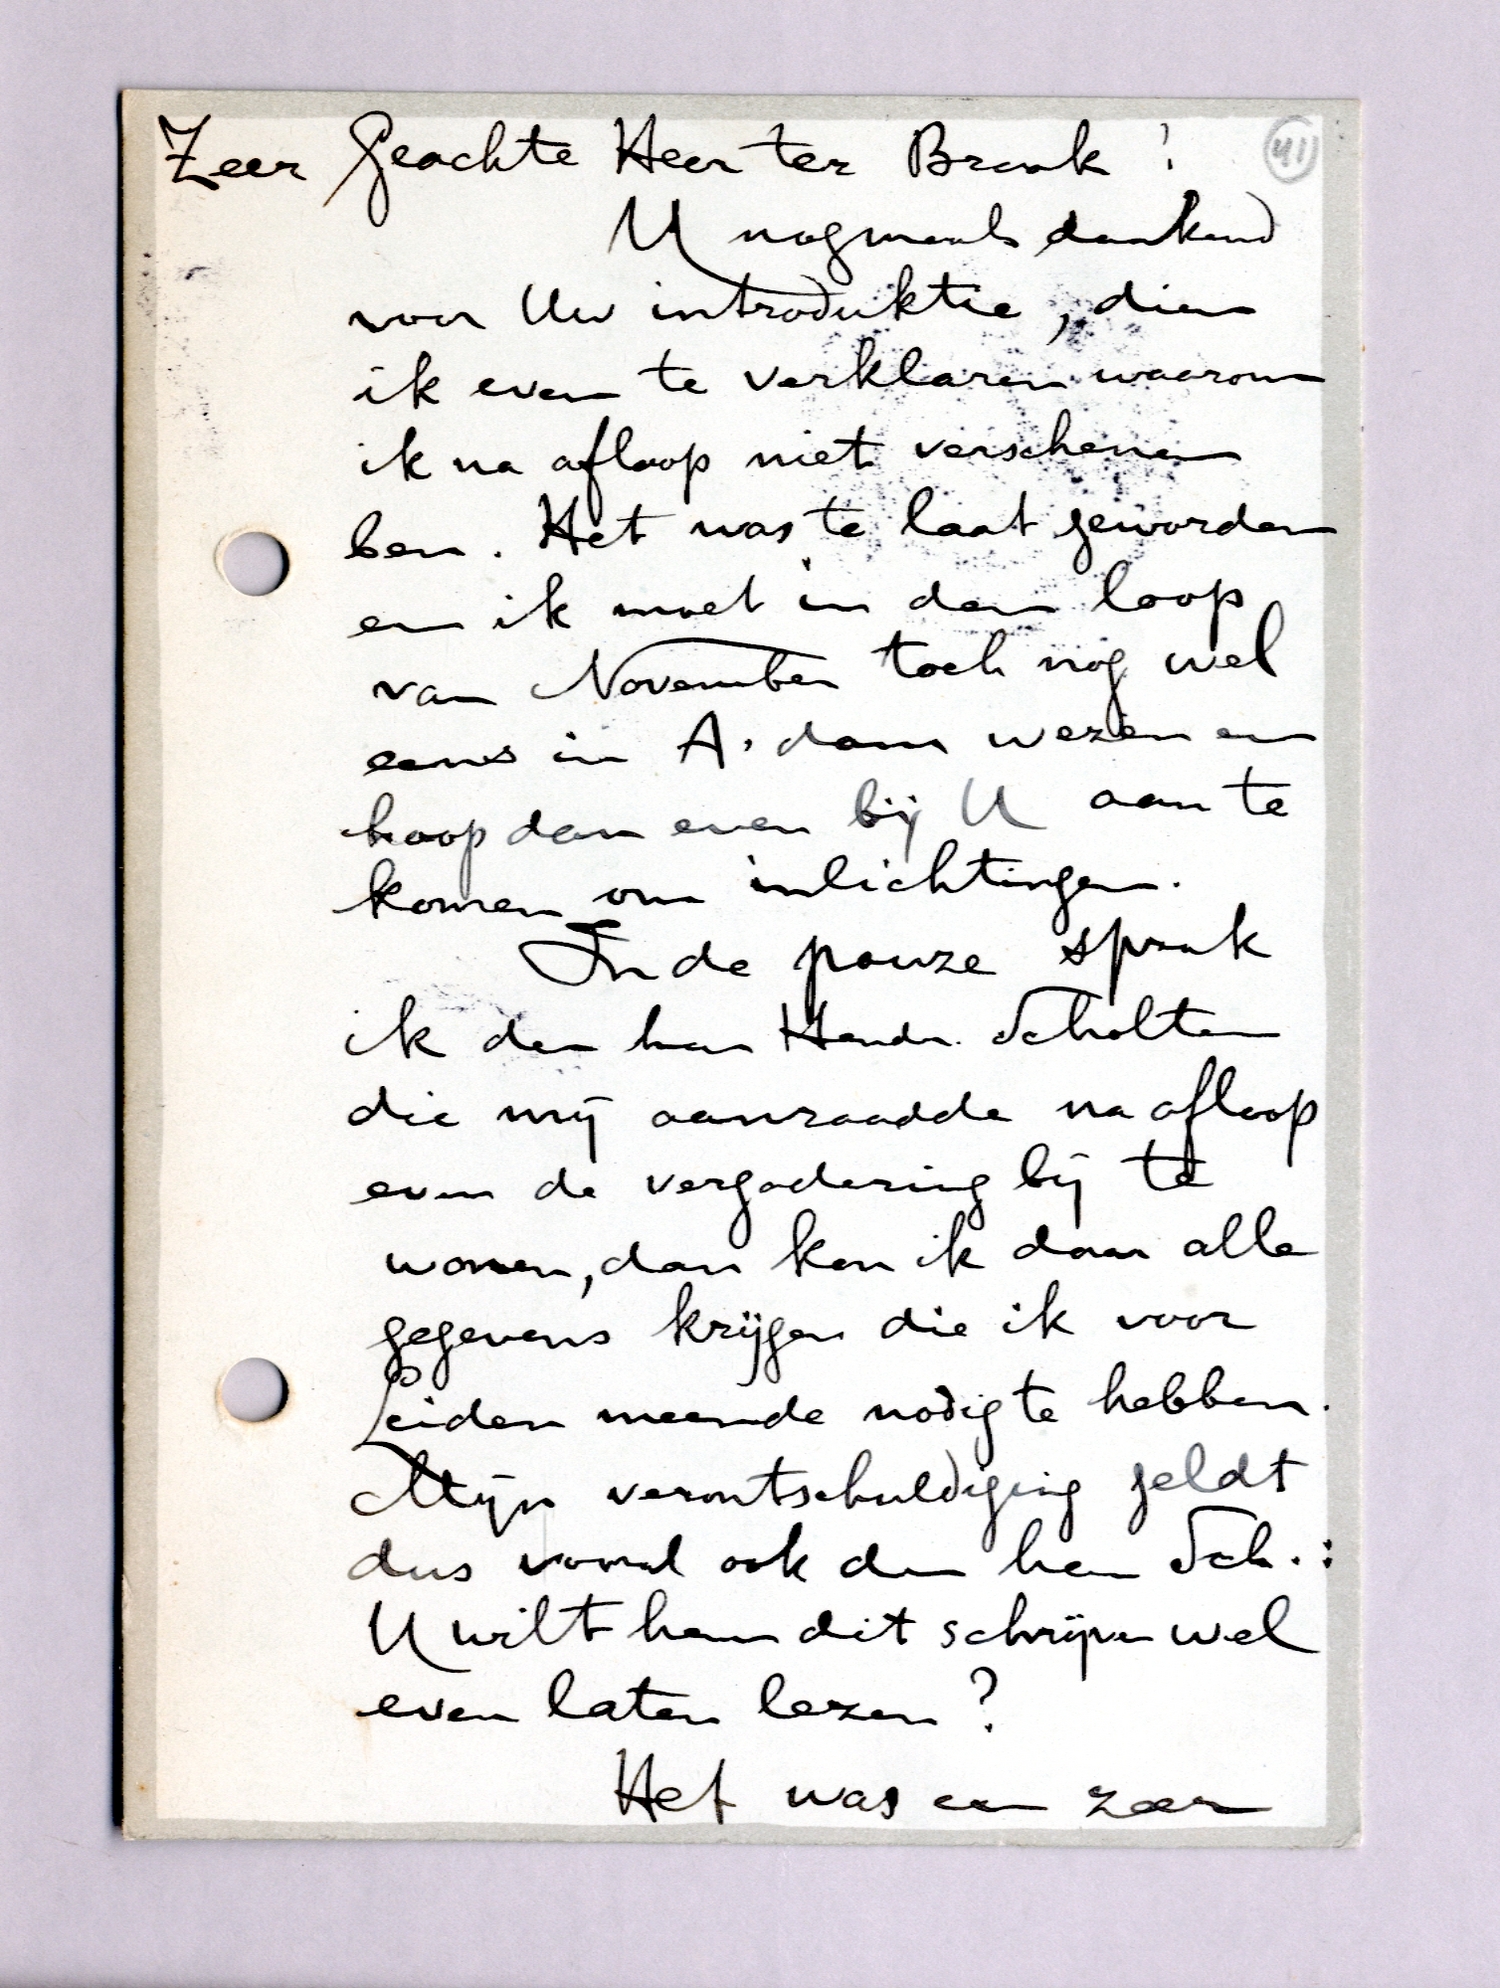 Zeer Geachte Heer ter Braak!
41
U nogmaals dankend
voor Uw introduktie, dien
ik even te verklaren waarom
ik na afloop niet verschenen
ben. Het was te laat geworden
en ik moet in den loop
van November toch nog wel
eens in A'dam wezen en
hoop dan even bij U aan te
komen om inlichtingen.
In de pauze sprak
ik den heer Hendr. Scholten
die mij aanraadde na afloop
even de vergadering bij te
wonen, dan kon ik daar alle
gegevens krijgen die ik voor
Leiden meende nodig te hebben.
Mijn verontschuldiging geldt
dus vooral ook den heer Sch.:
U wilt hem dit schrijven wel
even laten lezen?
Het was een zeer